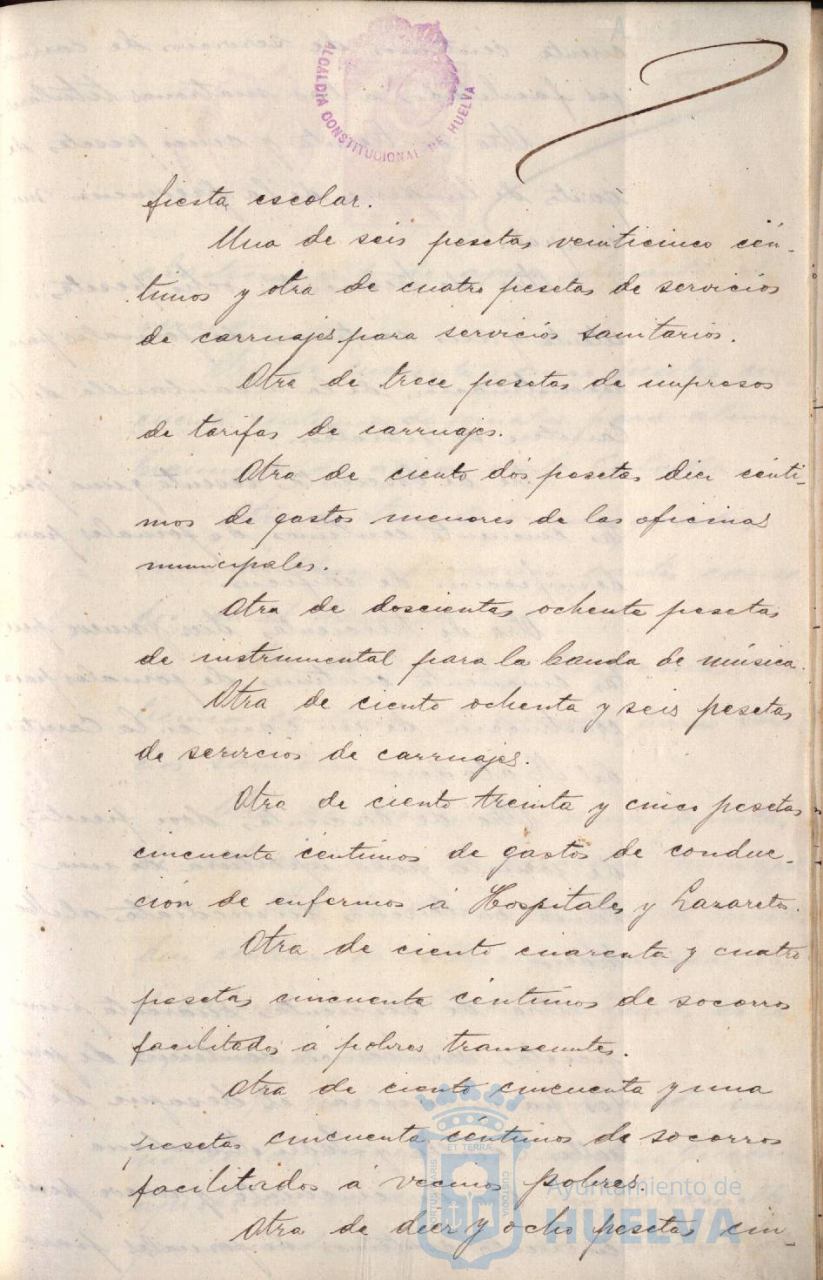 ALCALDIA CONSTITUCIONAL DE HUELVA
fiesta escolar.
Una de seis pesetas veinticinco cén-
timos y otra de cuatro pesetas de servicios
de carruajes para servicios sanitarios.
Otra de trece pesetas de impresos
de tarifas de carruajes.
Otra de ciento dós pesetas diez cénti-
mos de gastos menores de las oficinas
municipales.
Otra de doscientas ochenta pesetas
de instrumental para la banda de música.
Otra de ciento ochenta y seis pesetas
de servicios de carruajes.
Otra de ciento treinta y cinco pesetas
cincuenta céntimos de gastos de conduc-
ción de enfermos á Hospitales y Lazaretos.
Otra de ciento cuarenta y cuatro
pesetas cincuenta céntimos de socorros
facilitados á pobres transeuntes.
Otra de ciento cincuenta y una
pesetas cincuenta céntimos de socorros
facilitados á vecinos pobres.
Otra de diez y ocho pesetas cin-
ET TERRA
CUSTODIA
Ayuntamiento de
HUELVA